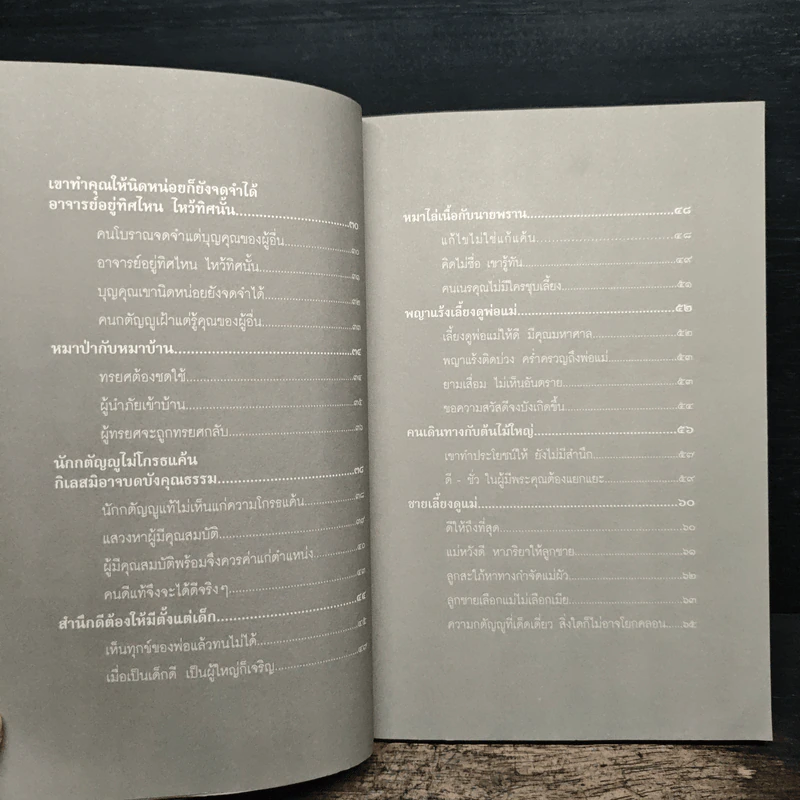 เขาทำคุณให้นิดหน่อยก็ยังจดจำได้
อาจารย์อยู่ทิศไหน ไหว้ทิศนั้น....................๓๐
คนโบราณจดจำแต่บุญคุณของผู้อื่น....................๓๐
อาจารย์อยู่ทิศไหน ไหว้ทิศนั้น....................๓๑
บุญคุณเขานิดหน่อยยังจดจำได้....................๓๒
คนกตัญญูเฝ้าแต่รู้คุณของผู้อื่น....................๓๓
หมาป่ากับหมาบ้าน....................๓๔
ทรยศต้องชดใช้....................๓๔
ผู้นำภัยเข้าบ้าน....................๓๕
ผู้ทรยศจะถูกทรยศกลับ....................๓๖
นักกตัญญูไม่โกรธแค้น
กิเลสมิอาจบดบังคุณธรรม....................๓๘
นักกตัญญูแท้ไม่เห็นแก่ความโกรธแค้น....................๓๘
แสวงหาผู้มีคุณสมบัติ....................๓๙
ผู้มีคุณสมบัติพร้อมจึงควรค่าแก่ตำแหน่ง....................๔๐
คนดีแท้จึงจะได้ดีจริงๆ....................๔๓
สำนึกดีต้องให้มีตั้งแต่เด็ก....................๔๔
เห็นทุกข์ของพ่อแล้วทนไม่ได้....................๔๕
เมื่อเป็นเด็กดี เป็นผู้ใหญ่ก็เจริญ....................๔๗
หมาไล่เนื้อกับนายพราน....................๔๘
แก้ไขไม่ใช่แก้แค้น....................๔๘
คิดไม่ซื่อ เขารู้ทัน....................๔๙
คนเนรคุณไม่มีใครชุบเลี้ยง....................๕๑
พญาแร้งเลี้ยงดูพ่อแม่....................๕๒
เลี้ยงดูพ่อแม่ให้ดี มีคุณมหาศาล....................๕๒
พญาแร้งติดบ่วง คร่ำครวญถึงพ่อแม่....................๕๓
ยามเสื่อม ไม่เห็นอันตราย....................๕๓
ขอความสวัสดีจงบังเกิดขึ้น....................๕๔
คนเดินทางกับต้นไม้ใหญ่....................๕๖
เขาทำประโยชน์ให้ ยังไม่มีสำนึก....................๕๗
ดี - ชั่ว ในผู้มีพระคุณต้องแยกแยะ....................๕๙
ชายเลี้ยงดูแม่....................๖๐
ดีให้ถึงที่สุด....................๖๐
แม่หวังดี หาภริยาให้ลูกชาย....................๖๑
ลูกสะใภ้หาทางกำจัดแม่ผัว....................๖๒
ลูกชายเลือกแม่ไม่เลือกเมีย....................๖๓
ความกตัญญูที่เด็ดเดี่ยว สิ่งใดก็ไม่อาจโยกคลอน....................๖๕